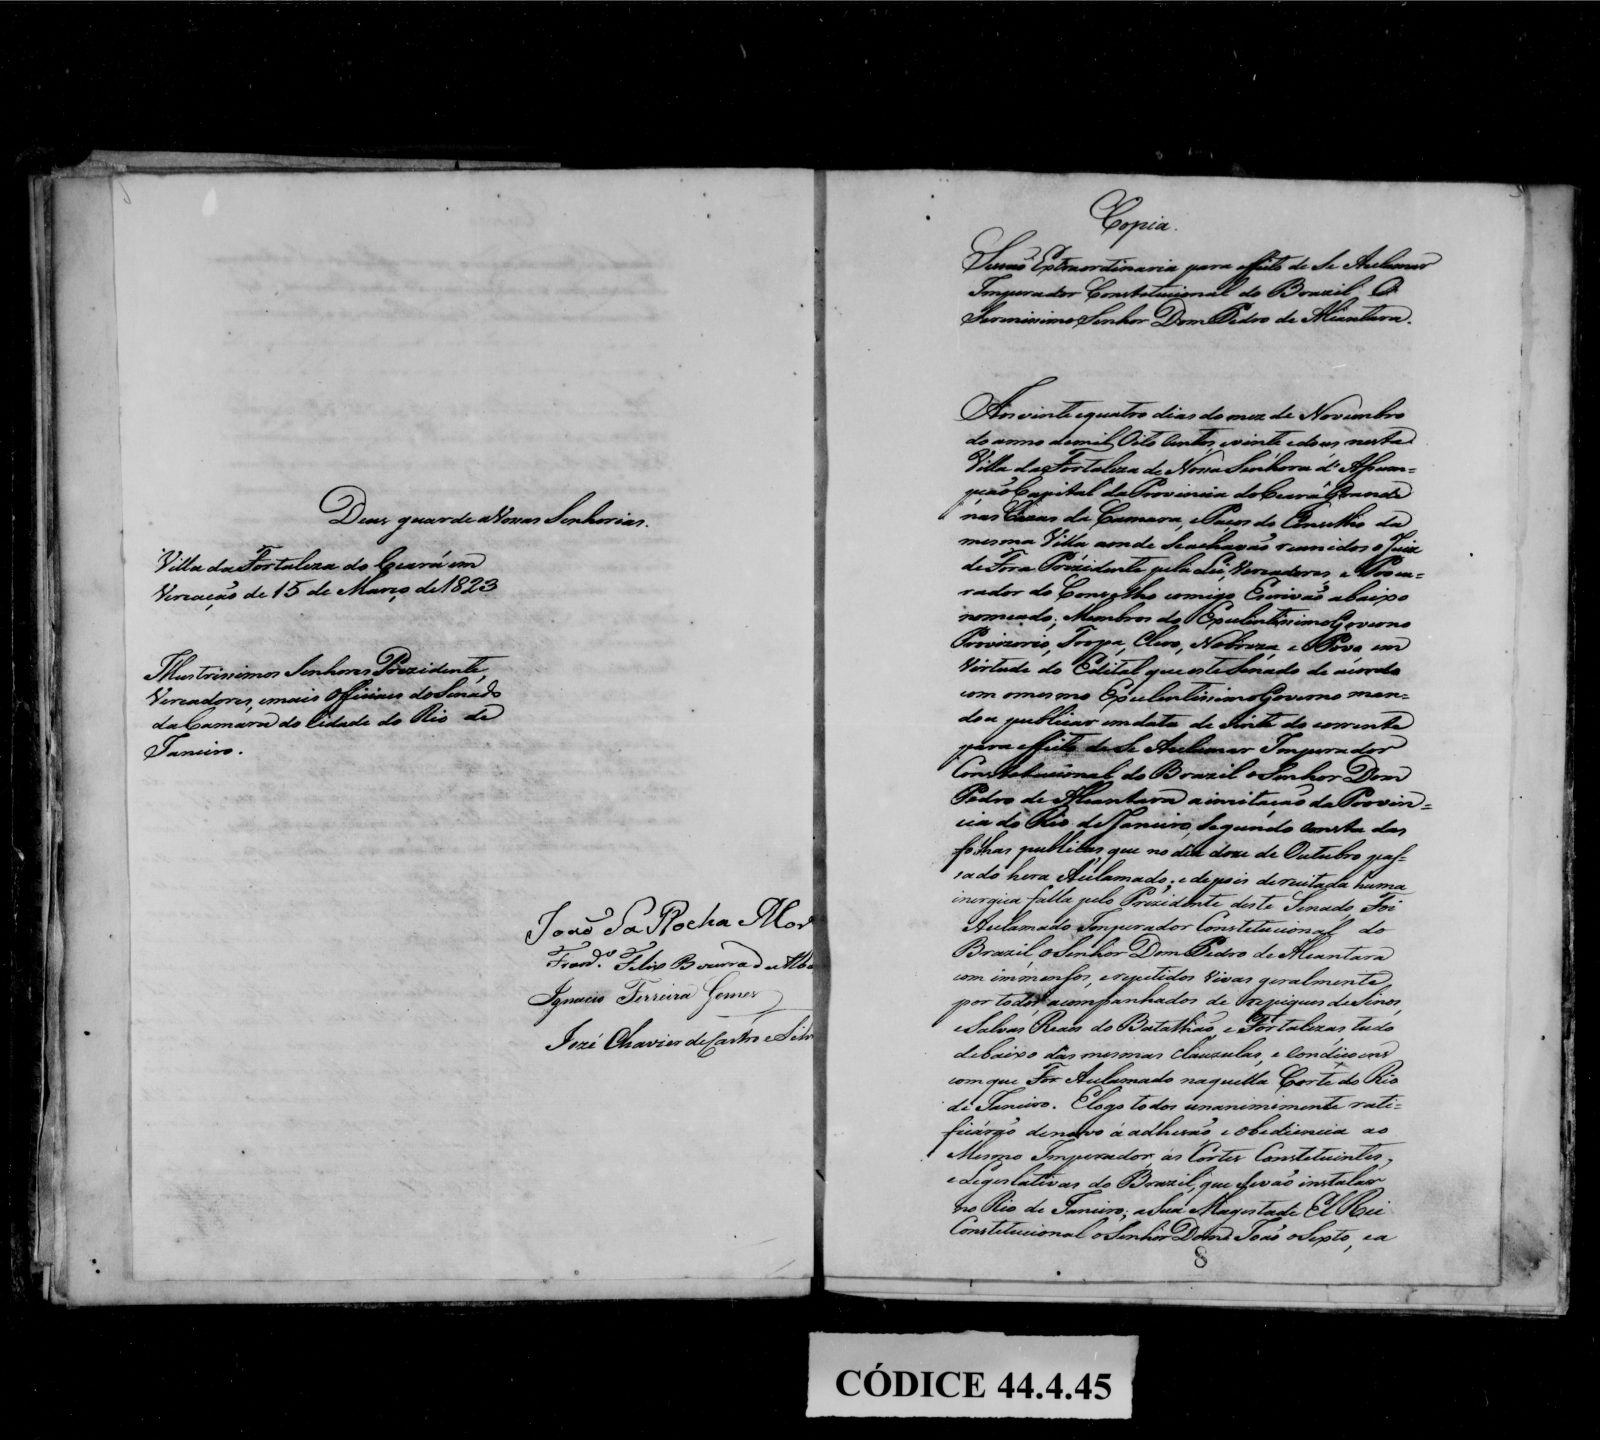 Deus guarde a Vossas Senhorias.
Villa da Fortaleza do Ceará em
Vereação de 15 de Março de 1823
Illustrissimos Senhores Prezidente,
Vereadores, e mais Officiaes do Senado
da Camara da Cidade do Rio de
Janeiro.
João da Rocha Mor
Franco. Felix Bezerra de Albu
Ignacio Ferreira Gomes
Jozé Chavier de Castro e Silv
Copia.
Sessão Extraordinaria para effeito de Se Acclamar
Imperador Constetucional do Brazil O
Serenissimo Senhor Dom Pedro de Alcantara.
Aos vinte e quatro dias do mez de Novembro
do anno de mil Oito Centos, e vinte e dous nesta
Villa da Fortaleza de Nossa Senhora d'Assum=
pção Capital da Provincia do Ceará Grande
nas Cazas da Camara, e Paços do Conselho da
mesma Villa aonde Se achavão reunidos o Juiz
de Fora Prezidente pela Lei, Vereadores, e Procu=
rador do Conselho comigo Escrivão abaixo
nomeado; Membros do Excelentissimo Governo
Provizorio, Tropa, Clero, Nobreza, e Povo em
Virtude do Edital que este Senado de acordo
com o mesmo Excelentissimo Governo man=
dou publicar em data de Vinte do corrente
para effeito de Se Acclamar Imperador
Constetucional do Brazil o Senhor Dom
Pedro de Alcantara a imitação da Provin=
cia do Rio de Janeiro, Segundo consta das
folhas publicas, que no dia doze de Outubro pas=
sado hera Acclamado; e depois de recitada huma
inergica falla pelo Prezidente deste Senado Foi
Acclamado Imperador Constetucional do
Brazil o Senhor Dom Pedro de Alcantara
com immensos, e repetidos Vivas geralmente
por todos, acompanhados de Repiques de Sinos,
e Salvas Reaes do Batalhão, e Fortalezas tudo
debaixo das mesmas Clauzulas, e Condiçoens
com que For Acclamado naquella Corte do Rio
de Janeiro. E logo todos unanimimente rati=
ficárão denovo á adhezão e obediencia ao
Mesmo Imperador, ás Côrtes Constetuintes,
e Legeslativas do Brazil, que se vão instalar
no Rio de Janeiro; a Sua Magestade El Rei
Constetucional o Senhor Dom João o Sexto, e a
8
CÓDICE 44.4.45